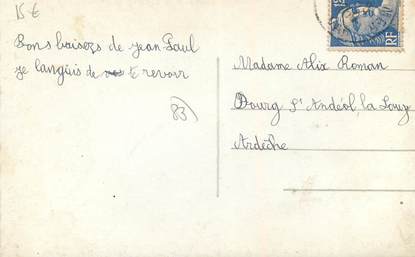 15 €
Bons baisers de jean Paul
je languis de te revoir
83)
Madame Alix Roman
Bourg St Andéol, la Louy
Ardèche
RF